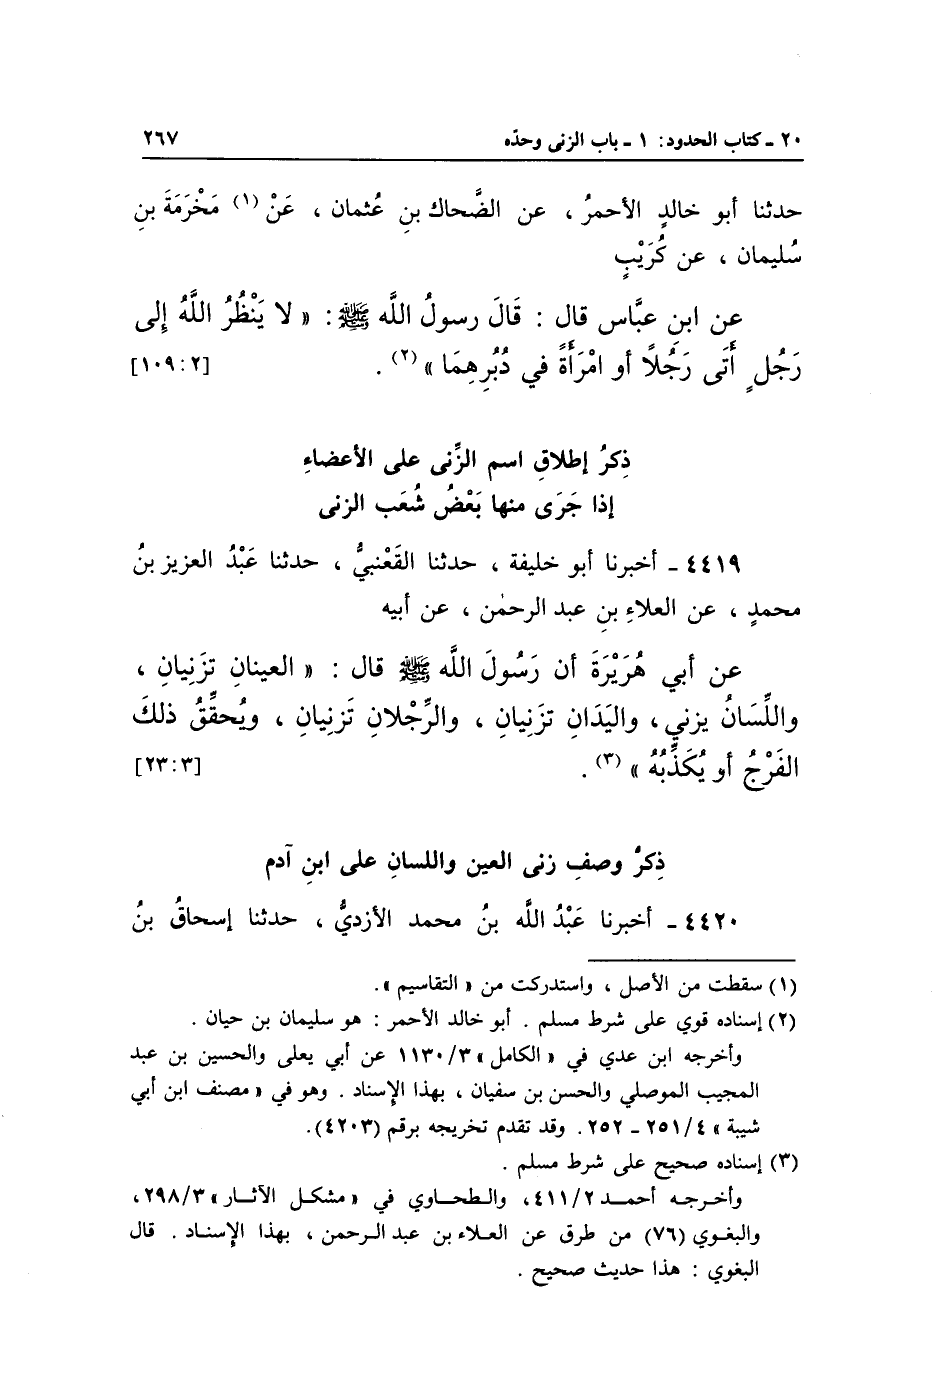 ٢٠ ـ كتاب الحدود: ١ ـ باب الزنى وحدّه ٢٦٧
حدثنا أبو خالدٍ الأحمرُ ، عن الضَّحاك بنِ عُثمان ، عَنْ (١) مَخْرَمَةَ بنِ
سُليمان ، عن كُرَيْبٍ
عن ابنِ عبَّاس قال : قَالَ رسولُ اللَّه ﷺ: « لا يَنْظُرُ اللَّهُ إلى
رَجُلٍ أَتَى رَجُلاً أو امْرَأَةً في دُبُرِهِمَا » (٢) . [١٠٩:٢]
ذِكرُ إطلاقِ اسم الزِّنى على الأعضاءِ
إذا جَرَى منها بَعْضُ شُعَب الزنى
٤٤١٩ ـ أخبرنا أبو خليفة ، حدثنا القَعْنبيُّ ، حدثنا عَبْدُ العزيز بنُ
محمدٍ ، عن العلاءِ بنِ عبد الرحمٰن ، عن أبيه
عن أبي هُرَيْرَةَ أن رَسُولَ اللَّه ﷺ قال : « العينانِ تزَنِيانِ ،
واللِّسَانُ يزني، واليَدَانِ تزنِيان ، والرِّجْلانِ تَزنِيانِ ، ويُحقِّقُ ذلكَ
الفَرْجُ أو يُكَذِّبُهُ » (٣) . [٢٣:٣]
ذِكرُ وصفِ زنى العين واللسانِ على ابنِ آدم
٤٤٢٠ ـ أخبرنا عَبْدُ اللَّه بنُ محمد الأزديُّ ، حدثنا إسحاقُ بنُ
(١) سقطت من الأصل ، واستدركت من « التقاسيم ».
(٢) إسناده قوي على شرط مسلم . أبو خالد الأحمر : هو سليمان بن حيان .
وأخرجه ابن عدي في « الكامل » ١١٣٠/٣ عن أبي يعلى والحسين بن عبد
المجيب الموصلي والحسن بن سفيان ، بهذا الإسناد . وهو في « مصنف ابن أبي
شيبة » ٢٥١/٤ ـ ٢٥٢. وقد تقدم تخريجه برقم (٤٢٠٣).
(٣) إسناده صحيح على شرط مسلم .
وأخرجه أحمد ٤١١/٢، والطحاوي في « مشكل الآثار » ٢٩٨/٣،
والبغوي (٧٦) من طرق عن العلاء بن عبد الرحمن ، بهذا الإسناد . قال
البغوي : هذا حديث صحيح .